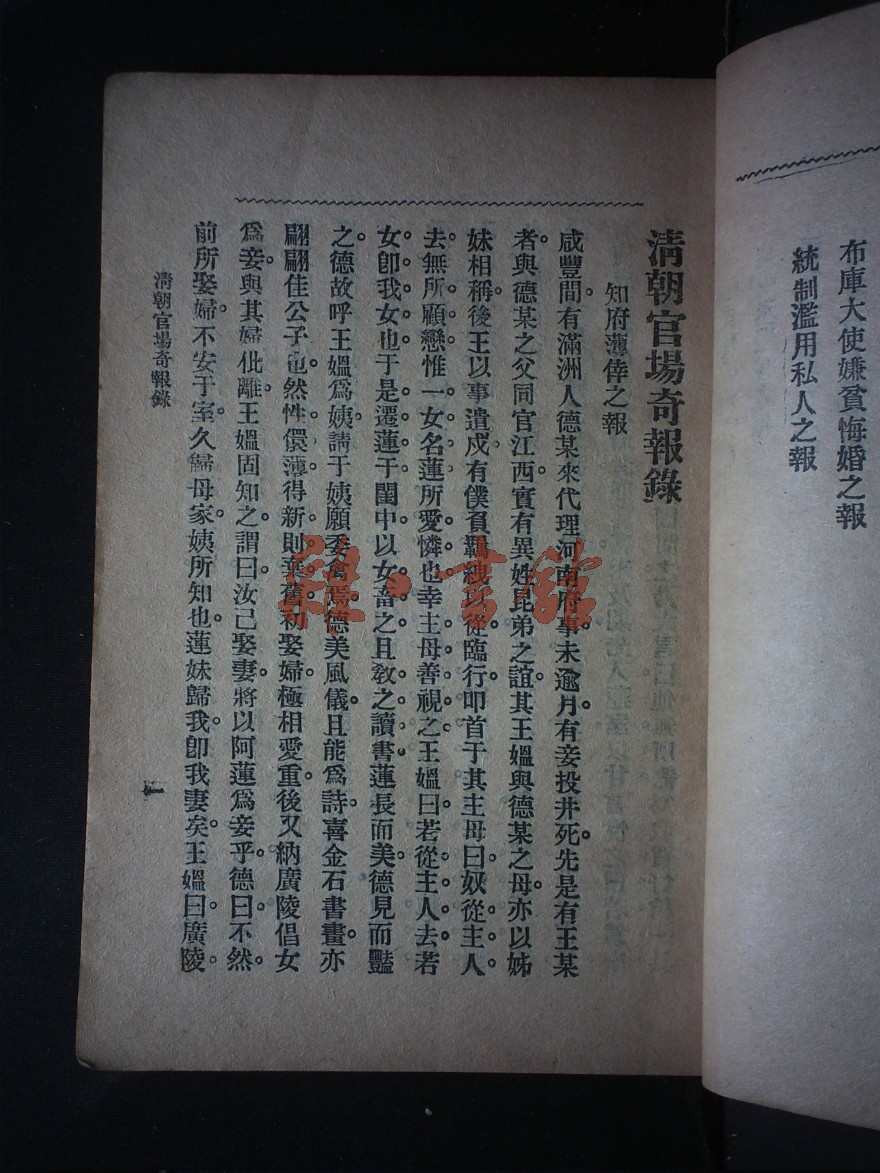 布庫大使嫌貧悔婚之報
統制濫用私人之報
清朝官場奇報錄
知府薄倖之報
咸豐間有滿洲人德某來代理河南府事未逾月有妾投井死先是有王某
者與德某之父同官江西實有異姓昆弟之誼其王媼與德某之母亦以姊
妹相稱後王以事遣戍有僕負羈洩以從臨行叩首于其主母曰奴從主人
去無所顧戀惟一女名蓮所愛憐也幸主母善視之王媼曰若從主人去若
女卽我女也于是遷蓮于閨中以女畜之且敎之讀書蓮長而美德見而豔
之德故呼王媼爲姨請于姨願委禽焉德美風儀且能爲詩喜金石書畫亦
翩翩佳公子也然性儇薄得新則棄舊初娶婦極相愛重後又納廣陵倡女
爲妾與其婦仳離王媼固知之謂曰汝已娶妻將以阿蓮爲妾乎德曰不然
前所娶婦不安于室久歸母家姨所知也蓮妹歸我卽我妻矣王媼曰廣陵
清朝官場奇報錄
一
雜·書館